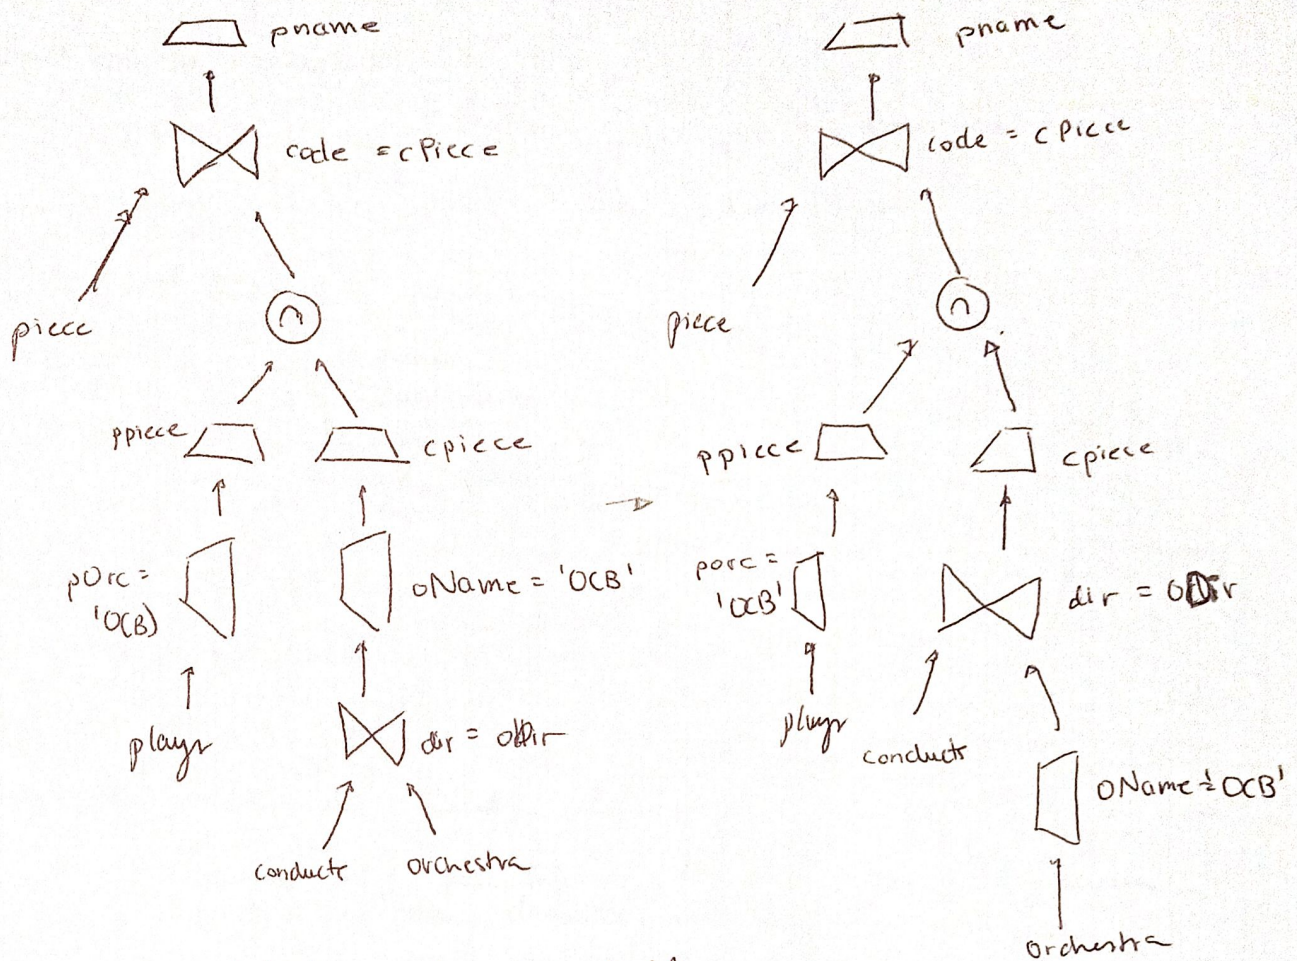 pname
code = cPiece
piece
∩
ppiece
cpiece
pOrc =
'OCB)
oName = 'OCB'
plays
dir = oDir
conducts
orchestra
pname
code = cPiece
piece
∩
ppiece
cpiece
porc =
'OCB'
dir = oDir
plays
conducts
oName = 'OCB'
orchestra